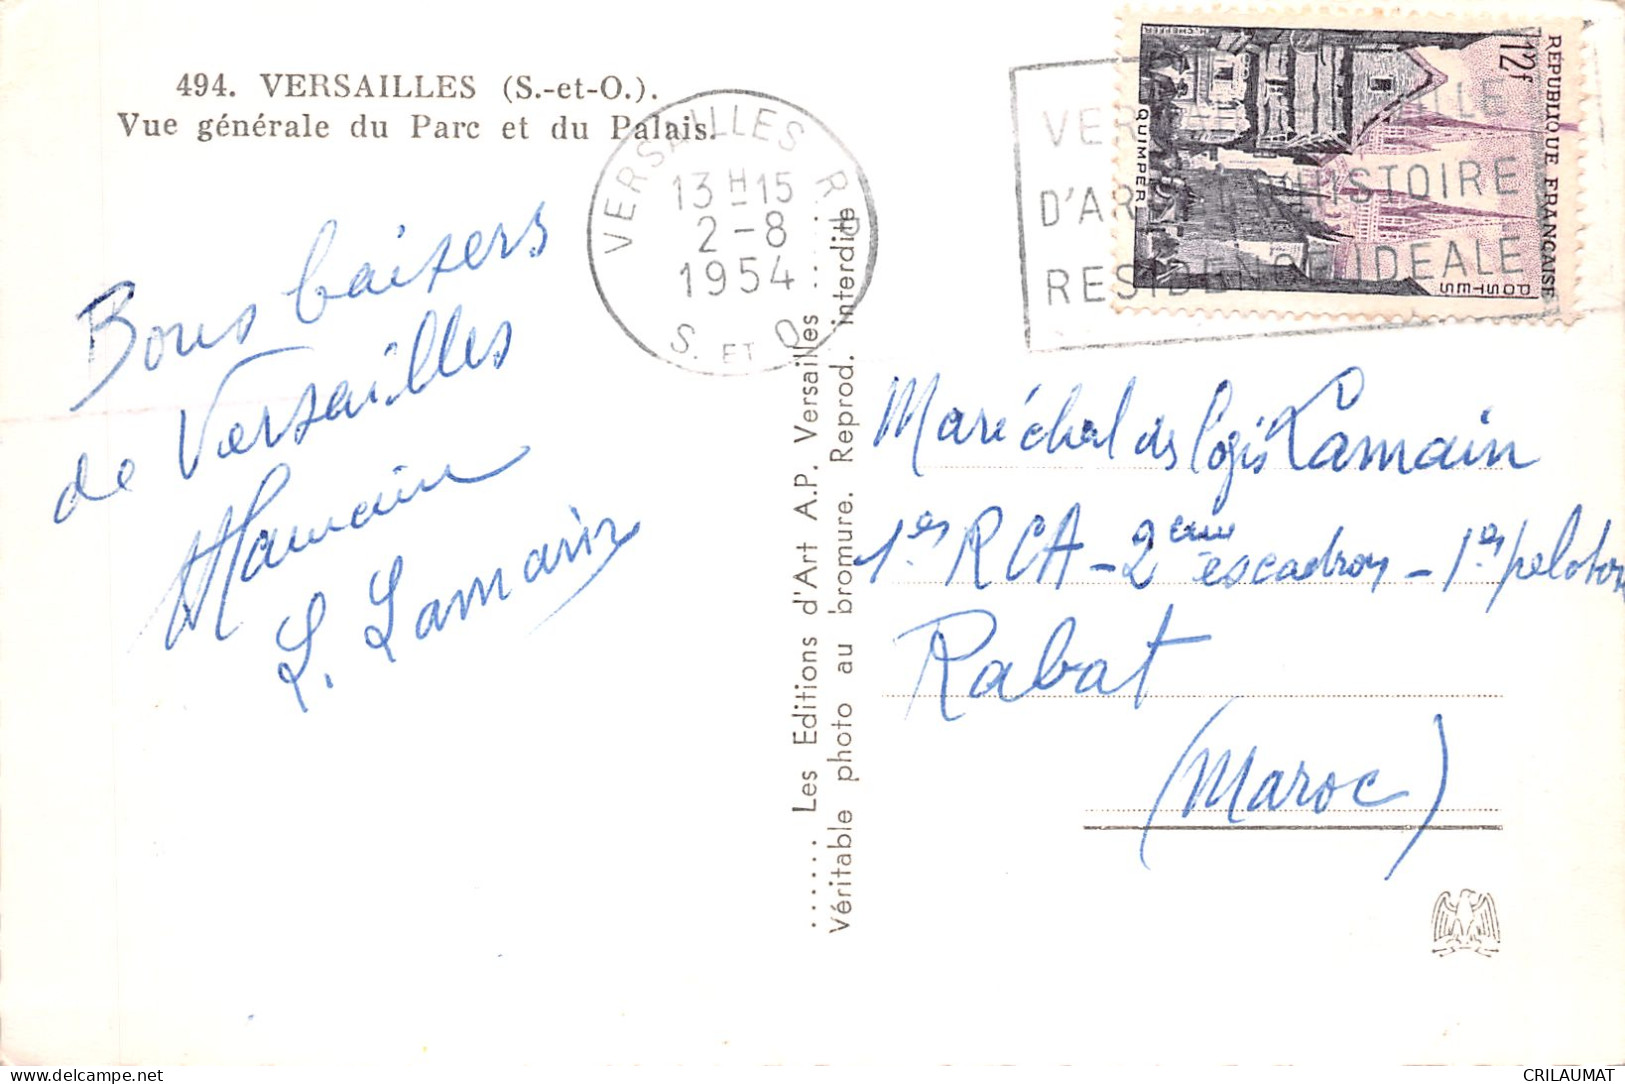 494. VERSAILLES (S.-et-O.).
Vue générale du Parc et du Palais.
VERSAILLES R.P
13 H 15
2-8
1954
S. ET O
VERSAILLES VILLE
D'ART ET D'HISTOIRE
RESIDENCE IDEALE
12f
REPUBLIQUE FRANÇAISE
POSTES
QUIMPER
Bons baisers
de Versailles
L. Lamarin
Les Editions d'Art A.P. Versailles
Véritable photo au bromure. Reprod. interdite
Maréchal des logis Lamain
1er RCA - 2eme escadron - 1er peloton
Rabat
(Maroc)
CRILAUMAT